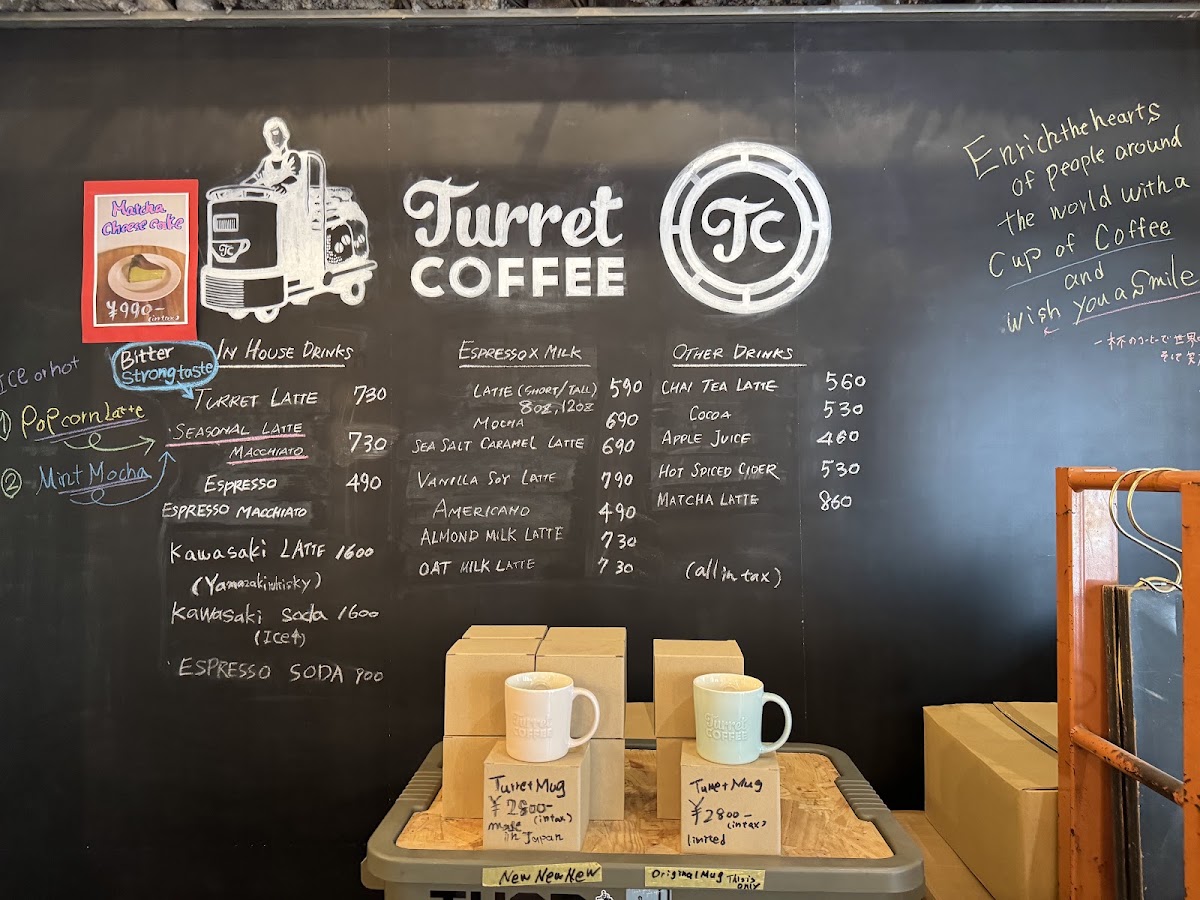 Matcha
Cheese cake
¥990-
(in tax)
TC
Turret
COFFEE
TC
Enrich the hearts
of people around
the world with a
Cup of Coffee
and
wish you a Smile
一杯のコーヒーで世界
Ice or hot
① Popcorn Latte
② Mint Mocha
Bitter
Strong taste
IN HOUSE DRINKS
TURRET LATTE 730
SEASONAL LATTE
MACCHIATO 730
ESPRESSO 490
ESPRESSO MACCHIATO
Kawasaki LATTE 1600
(Yamazaki whisky)
Kawasaki Soda 1600
(Ice↑)
ESPRESSO SODA 900
ESPRESSO X MILK
LATTE (SHORT/TALL) 590
8oz, 12oz
MOCHA 690
SEA SALT CARAMEL LATTE 690
VANILLA SOY LATTE 790
AMERICANO 490
ALMOND MILK LATTE 730
OAT MILK LATTE 730
OTHER DRINKS
CHAI TEA LATTE 560
COCOA 530
APPLE JUICE 460
HOT SPICED CIDER 530
MATCHA LATTE 860
(all in tax)
Turret
COFFEE
Turret
COFFEE
Turret Mug
¥2800-
(in tax)
made
in Japan
Turret Mug
¥2800-
(in tax)
limited
New New New
Original Mug This is
only